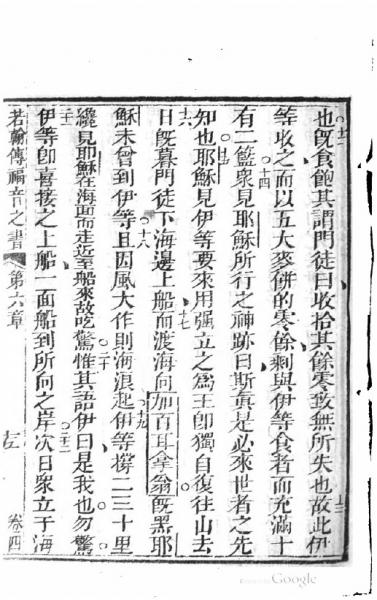 十二也既食飽其謂門徒曰收拾其餘零致無所失也十三故此伊
等收之而以五大麥餅的零餘剩與伊等食者而充滿十
有二籃十四衆見耶穌所行之神跡曰斯真是必來世者之先
知也十五耶穌見伊等要來用强立之為王卽獨自復往山去
十六日既暮門徒下海邊上船十七而渡海向加百耳拿翁既黑耶
穌未曾到伊等十八且因風大作則海浪起十九伊等撐二三十里
纔見耶穌在海面而走近船來故吃驚二十惟其語伊曰是我也勿驚
二一伊等卽喜接之上船一面船到所向之岸二二次日衆立于海
若翰傳福音之書 第六章 左 卷四
Google